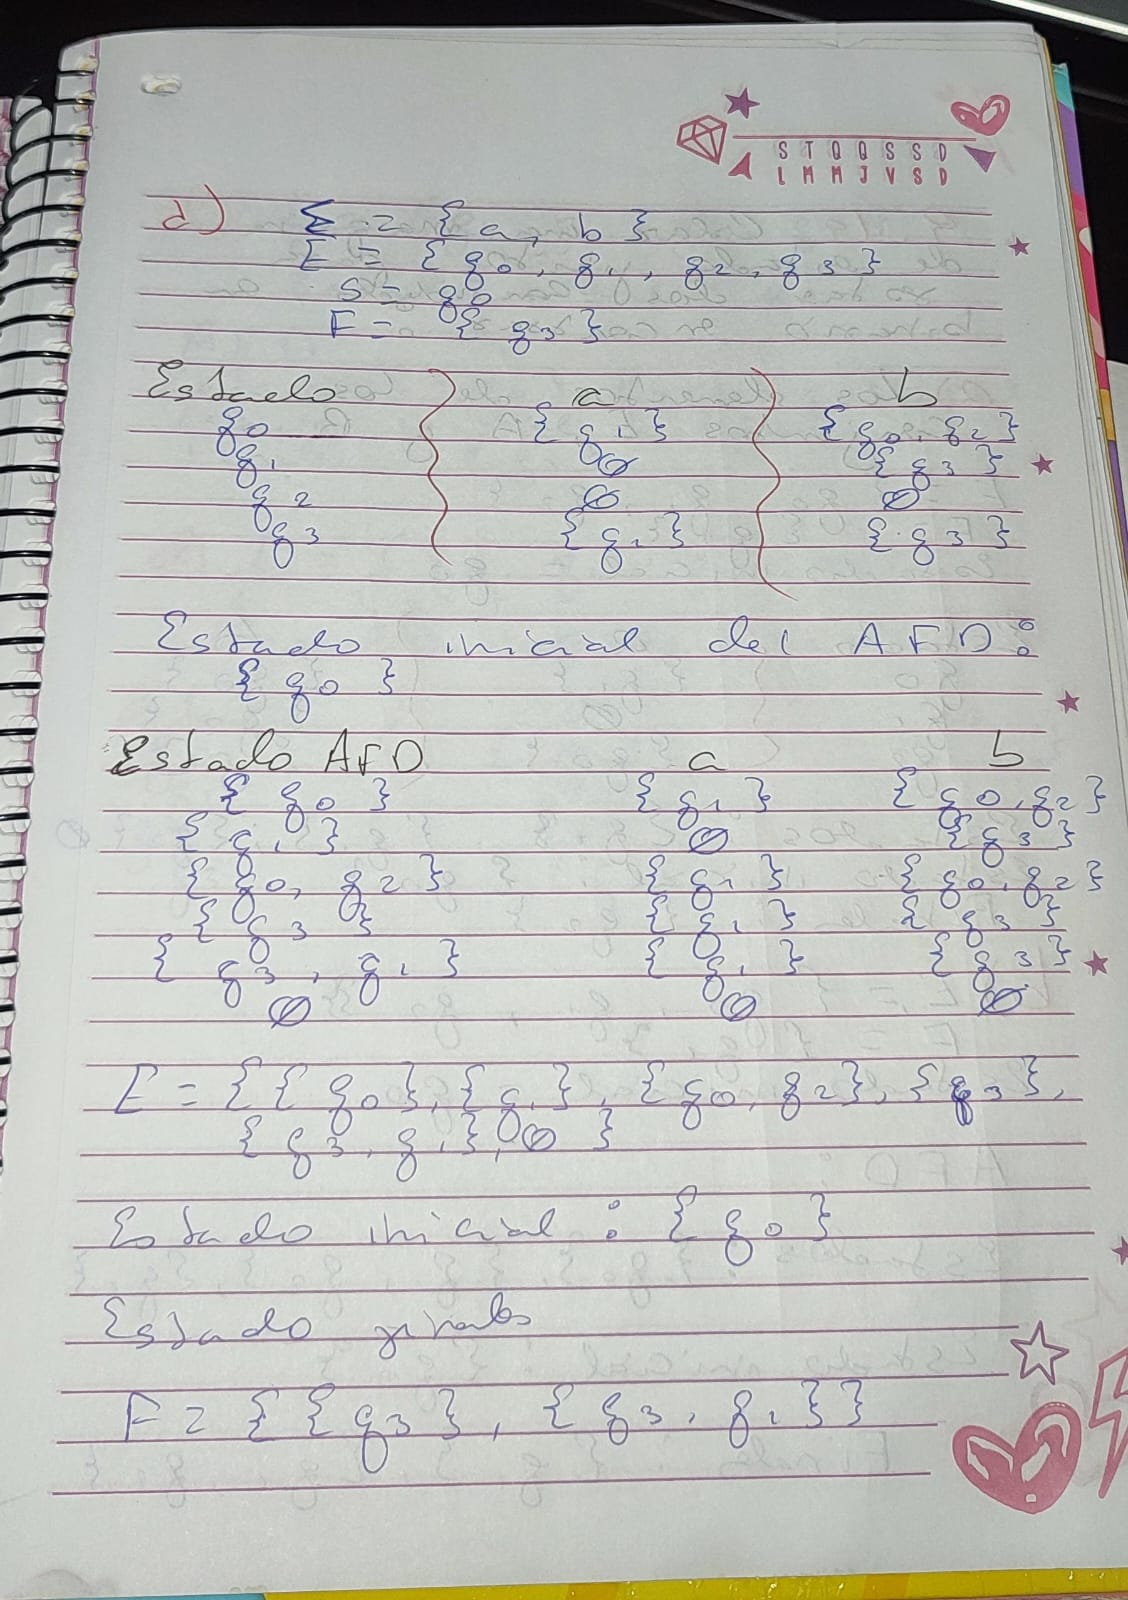 S T Q Q S S D
L M M J V S D
d) Σ = { a, b }
E = { q0, q1, q2, q3 }
s = q0
F = { q3 }
Estado a b
q0 { q1 } { q0, q2 }
q1 ∅ { q3 }
q2 ∅ ∅
q3 { q1 } { q3 }
Estado inicial del AFD:
{ q0 }
Estado AFD a b
{ q0 } { q1 } { q0, q2 }
{ q1 } ∅ { q3 }
{ q0, q2 } { q1 } { q0, q2 }
{ q3 } { q1 } { q3 }
{ q3, q1 } { q1 } { q3 }
∅ ∅ ∅
E = { { q0 }, { q1 }, { q0, q2 }, { q3 },
{ q3, q1 }, ∅ }
Estado inicial : { q0 }
Estado finales
F = { { q3 }, { q3, q1 } }